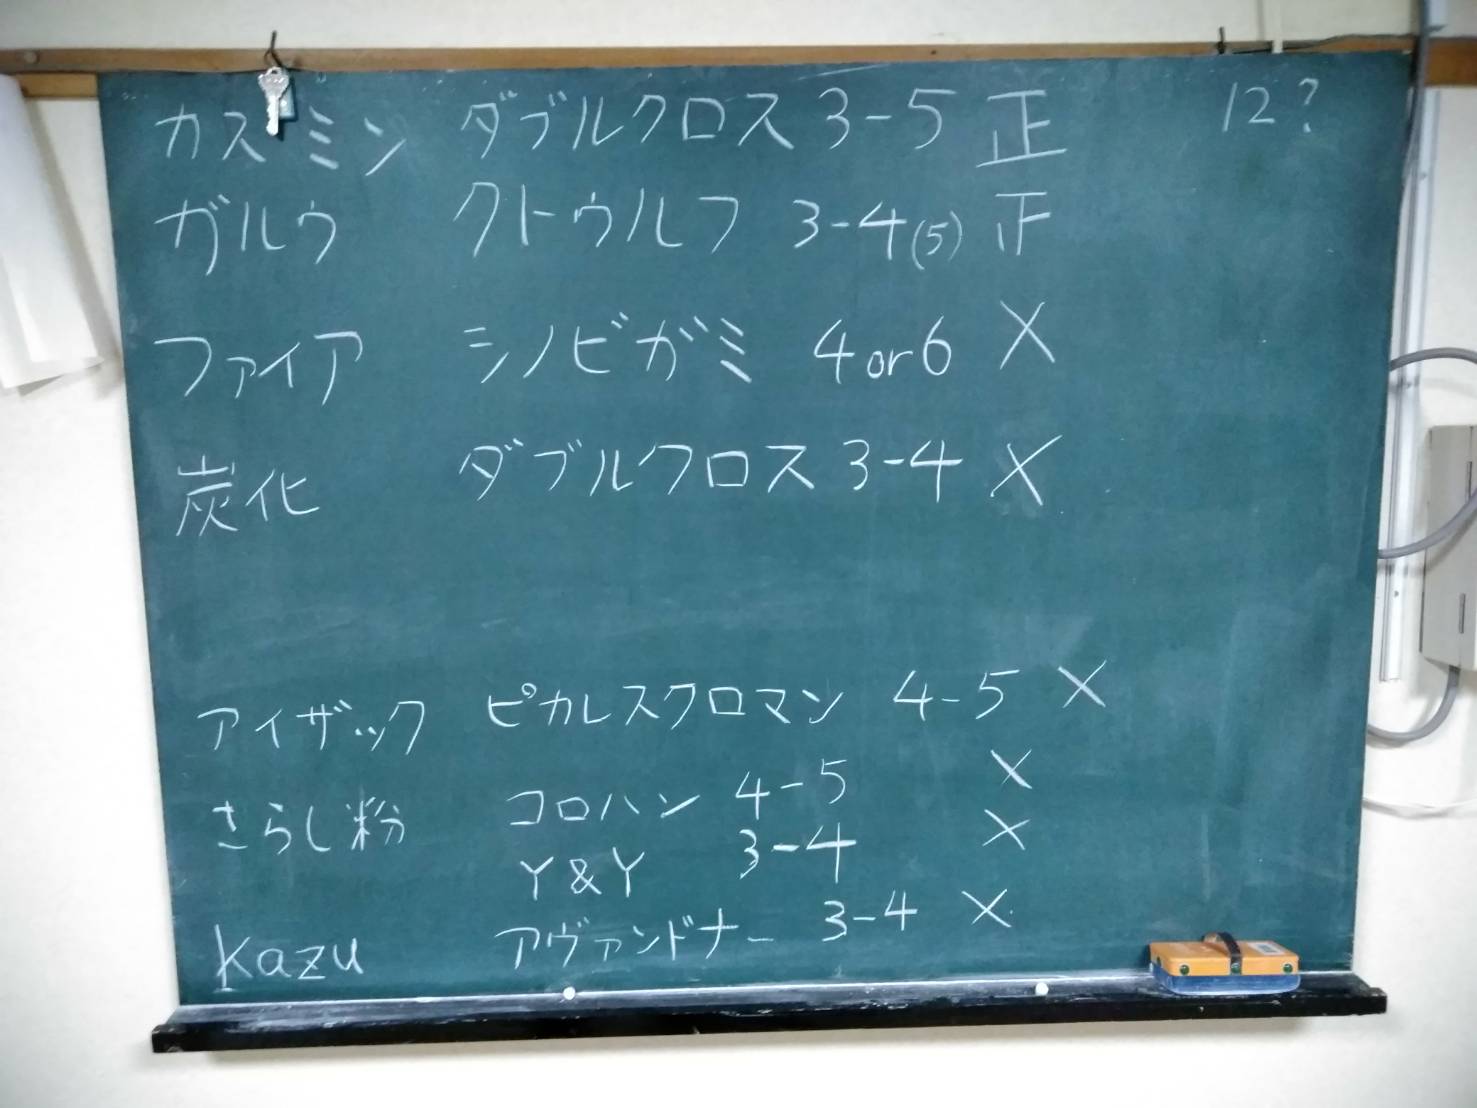 カスミン ダブルクロス 3-5 正 12?
ガルウ クトゥルフ 3-4(5) 正
ファイア シノビガミ 4or6 ×
炭化 ダブルクロス 3-4 ×
アイザック ピカレスクロマン 4-5 ×
さらし粉 コロハン 4-5 ×
Y&Y 3-4 ×
kazu アヴァンドナー 3-4 ×